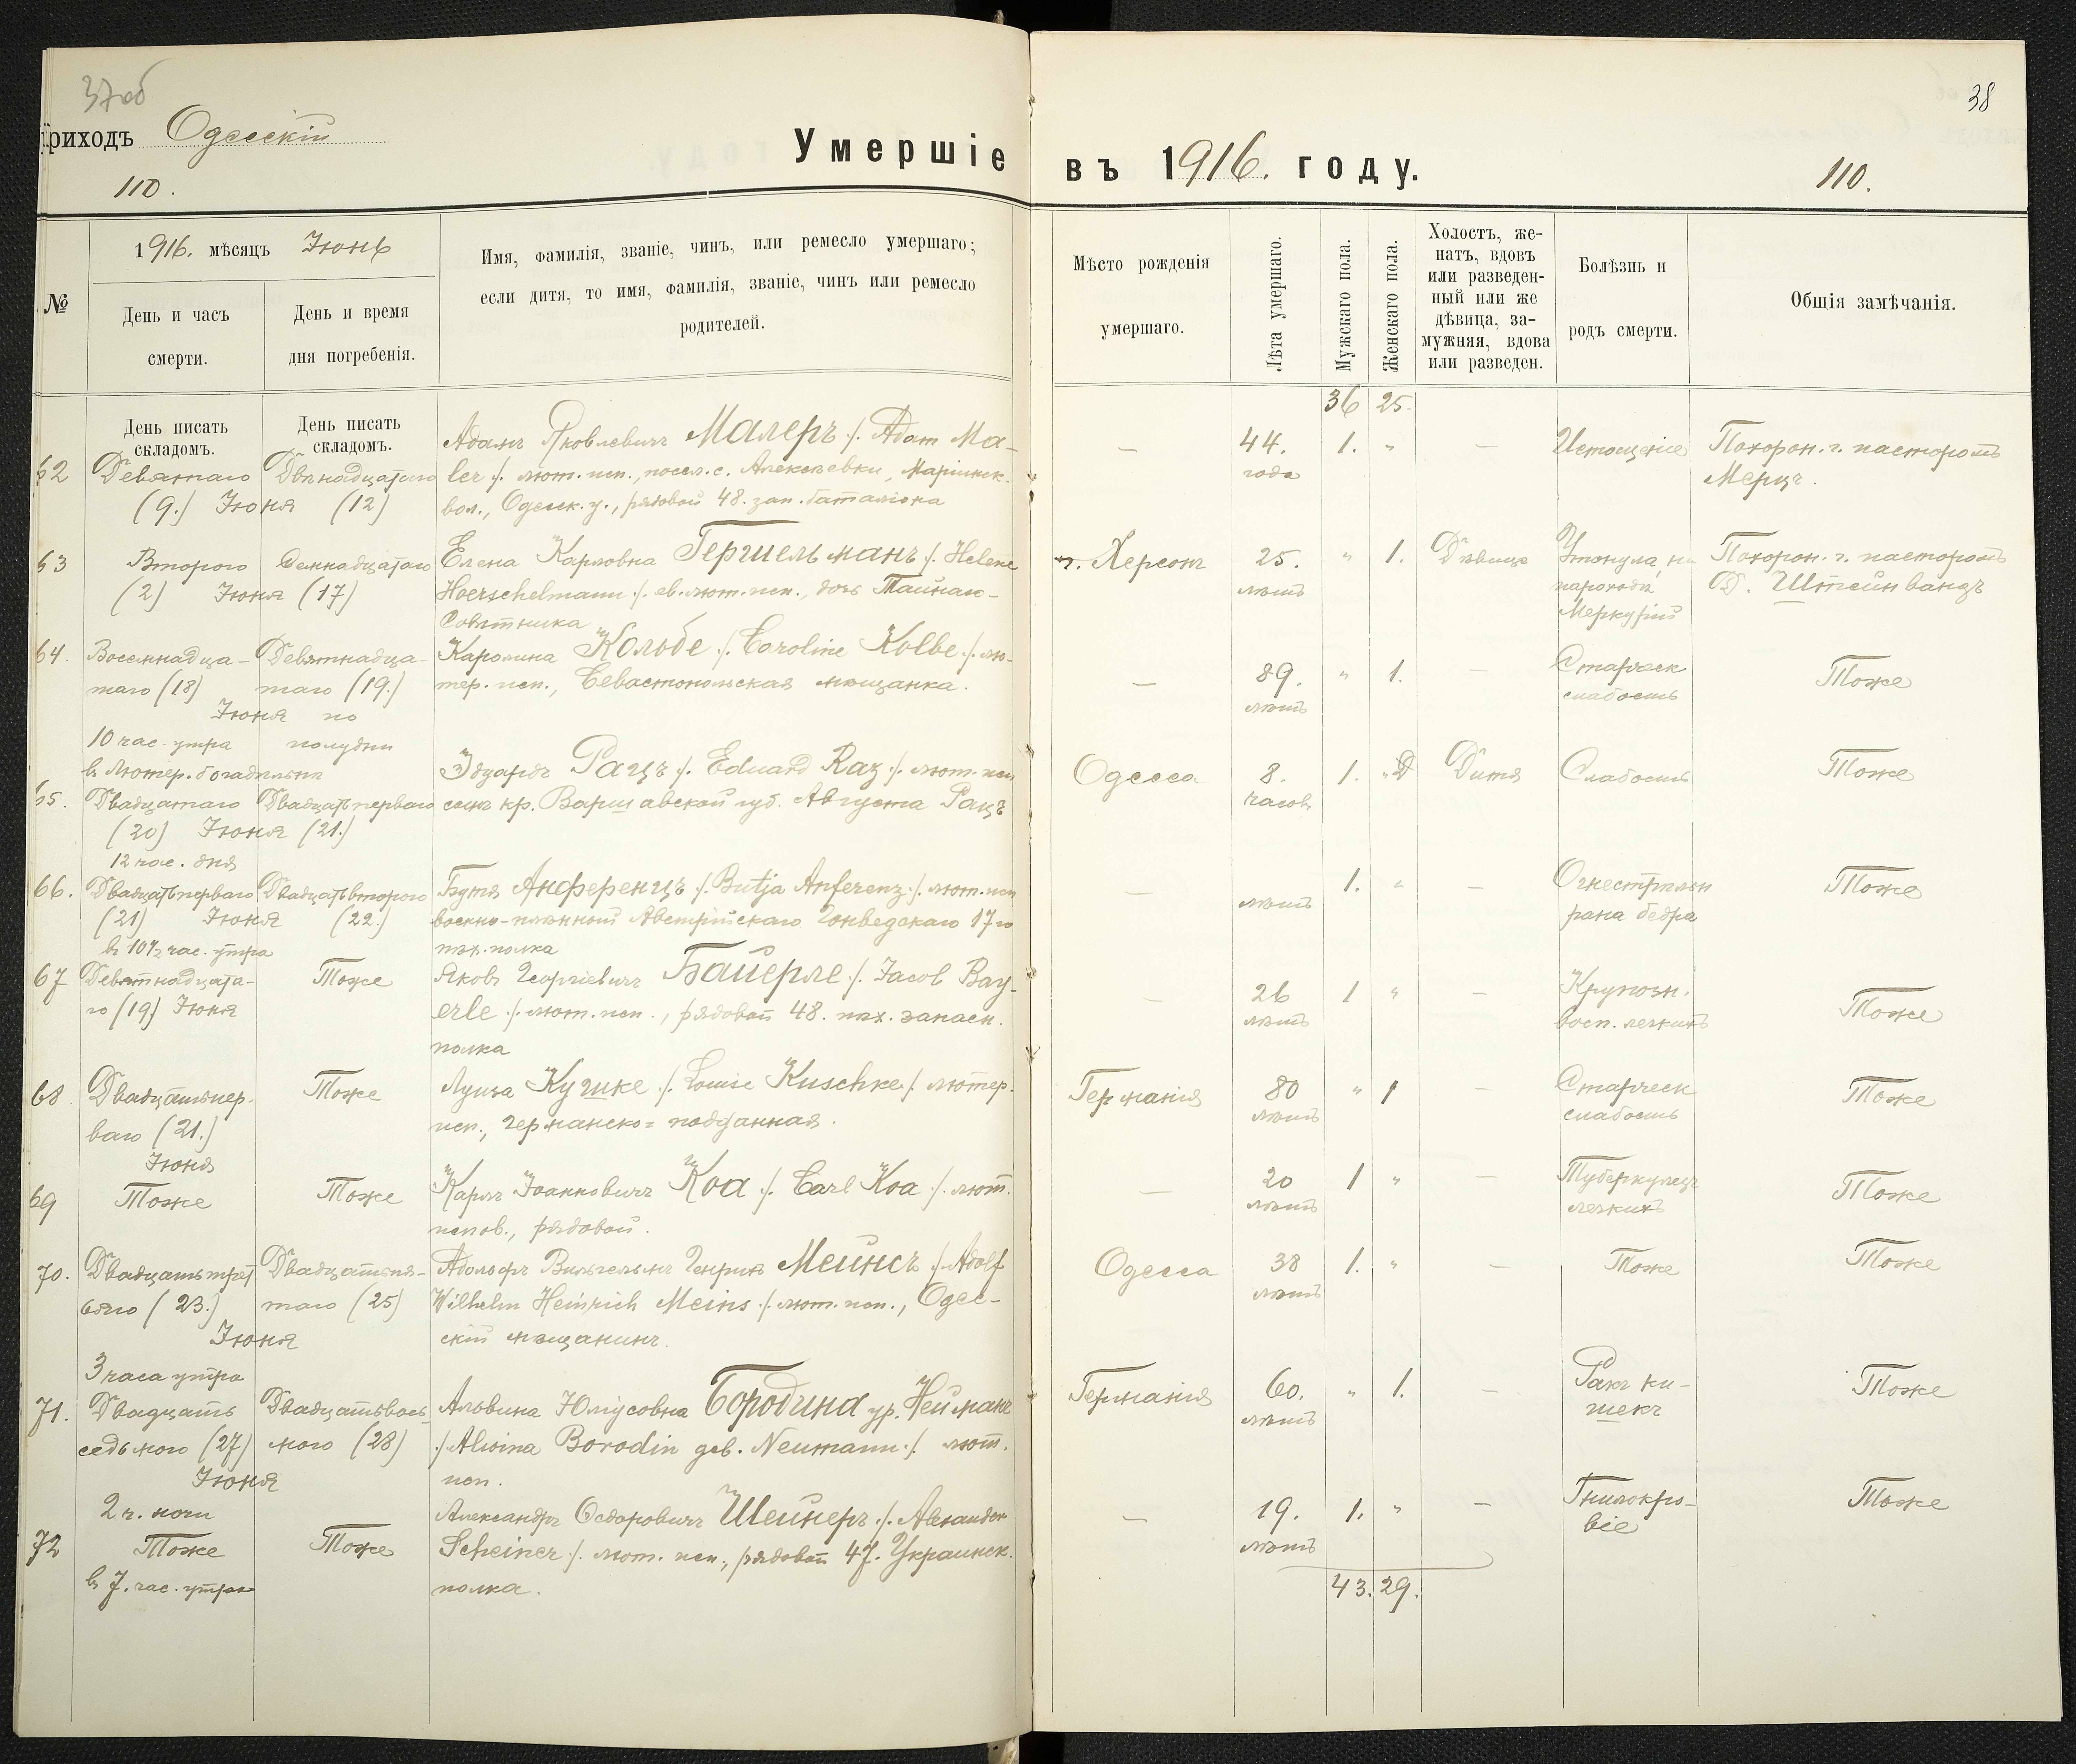 37об
Приходъ Одесскій
110.
Умершіе
№
1916. мѣсяцъ Іюнь
День и часъ
смерти.
День и время
дня погребенія.
Имя, фамилія, званіе, чинъ, или ремесло умершаго;
если дитя, то имя, фамилія, званіе, чинъ или ремесло
родителей.
День писать
складомъ.
День писать
складомъ.
62
Девятаго
(9.) Іюня
Двѣнадцатаго
(12)
Адамъ Яковлевичъ Малеръ ./. Adam Ma-
ler ./. лют. исп., посел. с. Алексѣевки, Маріинск.
вол., Одесск. у., рядовой 48. зап. баталіона
63
Второго
(2) Іюня
Семнадцатаго
(17)
Елена Карловна Гершельманъ ./. Helene
Hoerschelmann ./. ев. лют. исп., дочь Тайнаго-
Совѣтника
64.
Восемнадца-
таго (18)
Іюня
10 час. утра
въ Лютер. богадѣльнѣ
Девятнадца-
таго (19.)
по
полудни
Каролина Кольбе ./. Caroline Kolbe ./. лю-
тер. исп., Севастопольская мѣщанка.
65.
Двадцатаго
(20) Іюня
12 час. дня
Двадцатьперваго
(21.)
Эдуардъ Рацъ ./. Eduard Raz ./. лют. исп
сынъ кр. Варшавской губ. Августа Рацъ
66.
Двадцатьперваго
(21) Іюня
въ 10½ час. утра
Двадцатьвторого
(22.)
Бутя Анференцъ ./. Butja Anferenz ./. лют. исп
военно-плѣнный Австрійскаго Гонведскаго 17го
пѣх. полка
67
Девятнадцата-
го (19) Іюня
Тоже
Яковъ Георгіевичъ Байерле ./. Jacob Bay-
erle ./. лют. исп., рядовой 48. пѣх. запасн.
полка
68
Двадцатьпер-
ваго (21.)
Іюня
Тоже
Луиза Кушке ./. Louise Kuschke ./. лютер.
исп., германско=подданная.
69
Тоже
Тоже
Карлъ Іоанновичъ Коа ./. Carl Koa ./. лют.
испов., рядовой.
70.
Двадцатьтрет
ьяго (23.)
Іюня
3 часа утра
Двадцатьпя-
таго (25)
Адольфъ Вильгельмъ Генрихъ Мейнсъ ./. Adolf
Wilhelm Heinrich Meins ./. лют. исп., Одес-
скій мѣщанинъ.
71.
Двадцать
седьмого (27)
Іюня
2 ч. ночи
Двадцатьвось-
мого (28)
Альвина Юліусовна Бородина ур. Нейманъ
./. Alwina Borodin geb. Neumann ./. лют.
исп.
72
Тоже
въ 7. час. утра
Тоже
Александръ Ѳедоровичъ Шейнеръ ./. Alexander
Scheiner ./. лют. исп., рядовой 47. Украинск.
полка.
38
въ 1916. году.
110.
Мѣсто рожденія
умершаго.
Лѣта умершаго.
Мужскаго пола.
Женскаго пола.
Холостъ, же-
натъ, вдовъ
или разведен-
ный или же
дѣвица, за-
мужняя, вдова
или разведен.
Болѣзнь и
родъ смерти.
Общія замѣчанія.
36 25.
— 44. 1. " — Истощеніе Похорон. г. пасторомъ
года Мерцъ.
г. Херсонъ 25. " 1. Дѣвица Утонула, на Похорон. г. пасторомъ
лѣтъ пароходѣ Д. Штейнвандъ
Меркурій
— 89. " 1. — Старческ Тоже
лѣтъ слабость
Одесса 8. 1. " Дитя Слабость Тоже
часовъ
— 1. " — Огнестрѣльн Тоже
лѣтъ рана бедра
— 26 1 " — Крупозн. Тоже
лѣтъ восп. легкихъ
Германія 80 " 1 — Старческ Тоже
лѣтъ слабость
— 20 1 " — Туберкулезъ Тоже
лѣтъ легкихъ
Одесса 38 1. " — Тоже Тоже
лѣтъ
Германія 60. " 1. — Ракъ ки- Тоже
лѣтъ шекъ
— 19. 1. " — Гнилокро- Тоже
лѣтъ віе
43. 29.